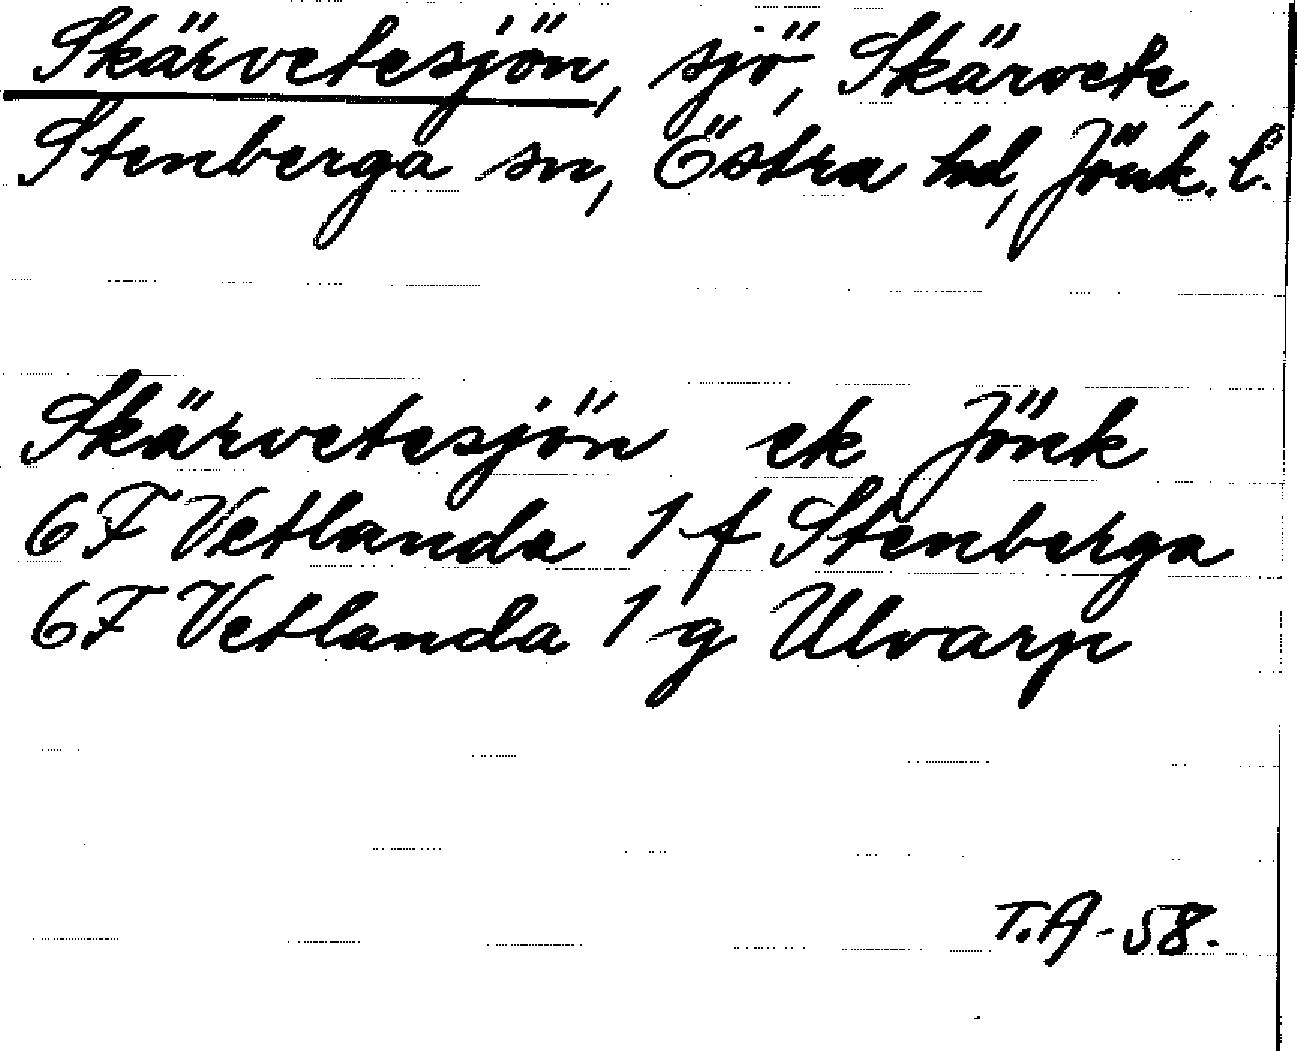 Skärvetesjön, sjö, Skärvete,
Stenberga sn, Östra hd, Jönk. l.
Skärvetesjön ek Jönk
6F Vetlanda 1 f Stenberga
6F Vetlanda 1 g Ulvarp
T.A-58.